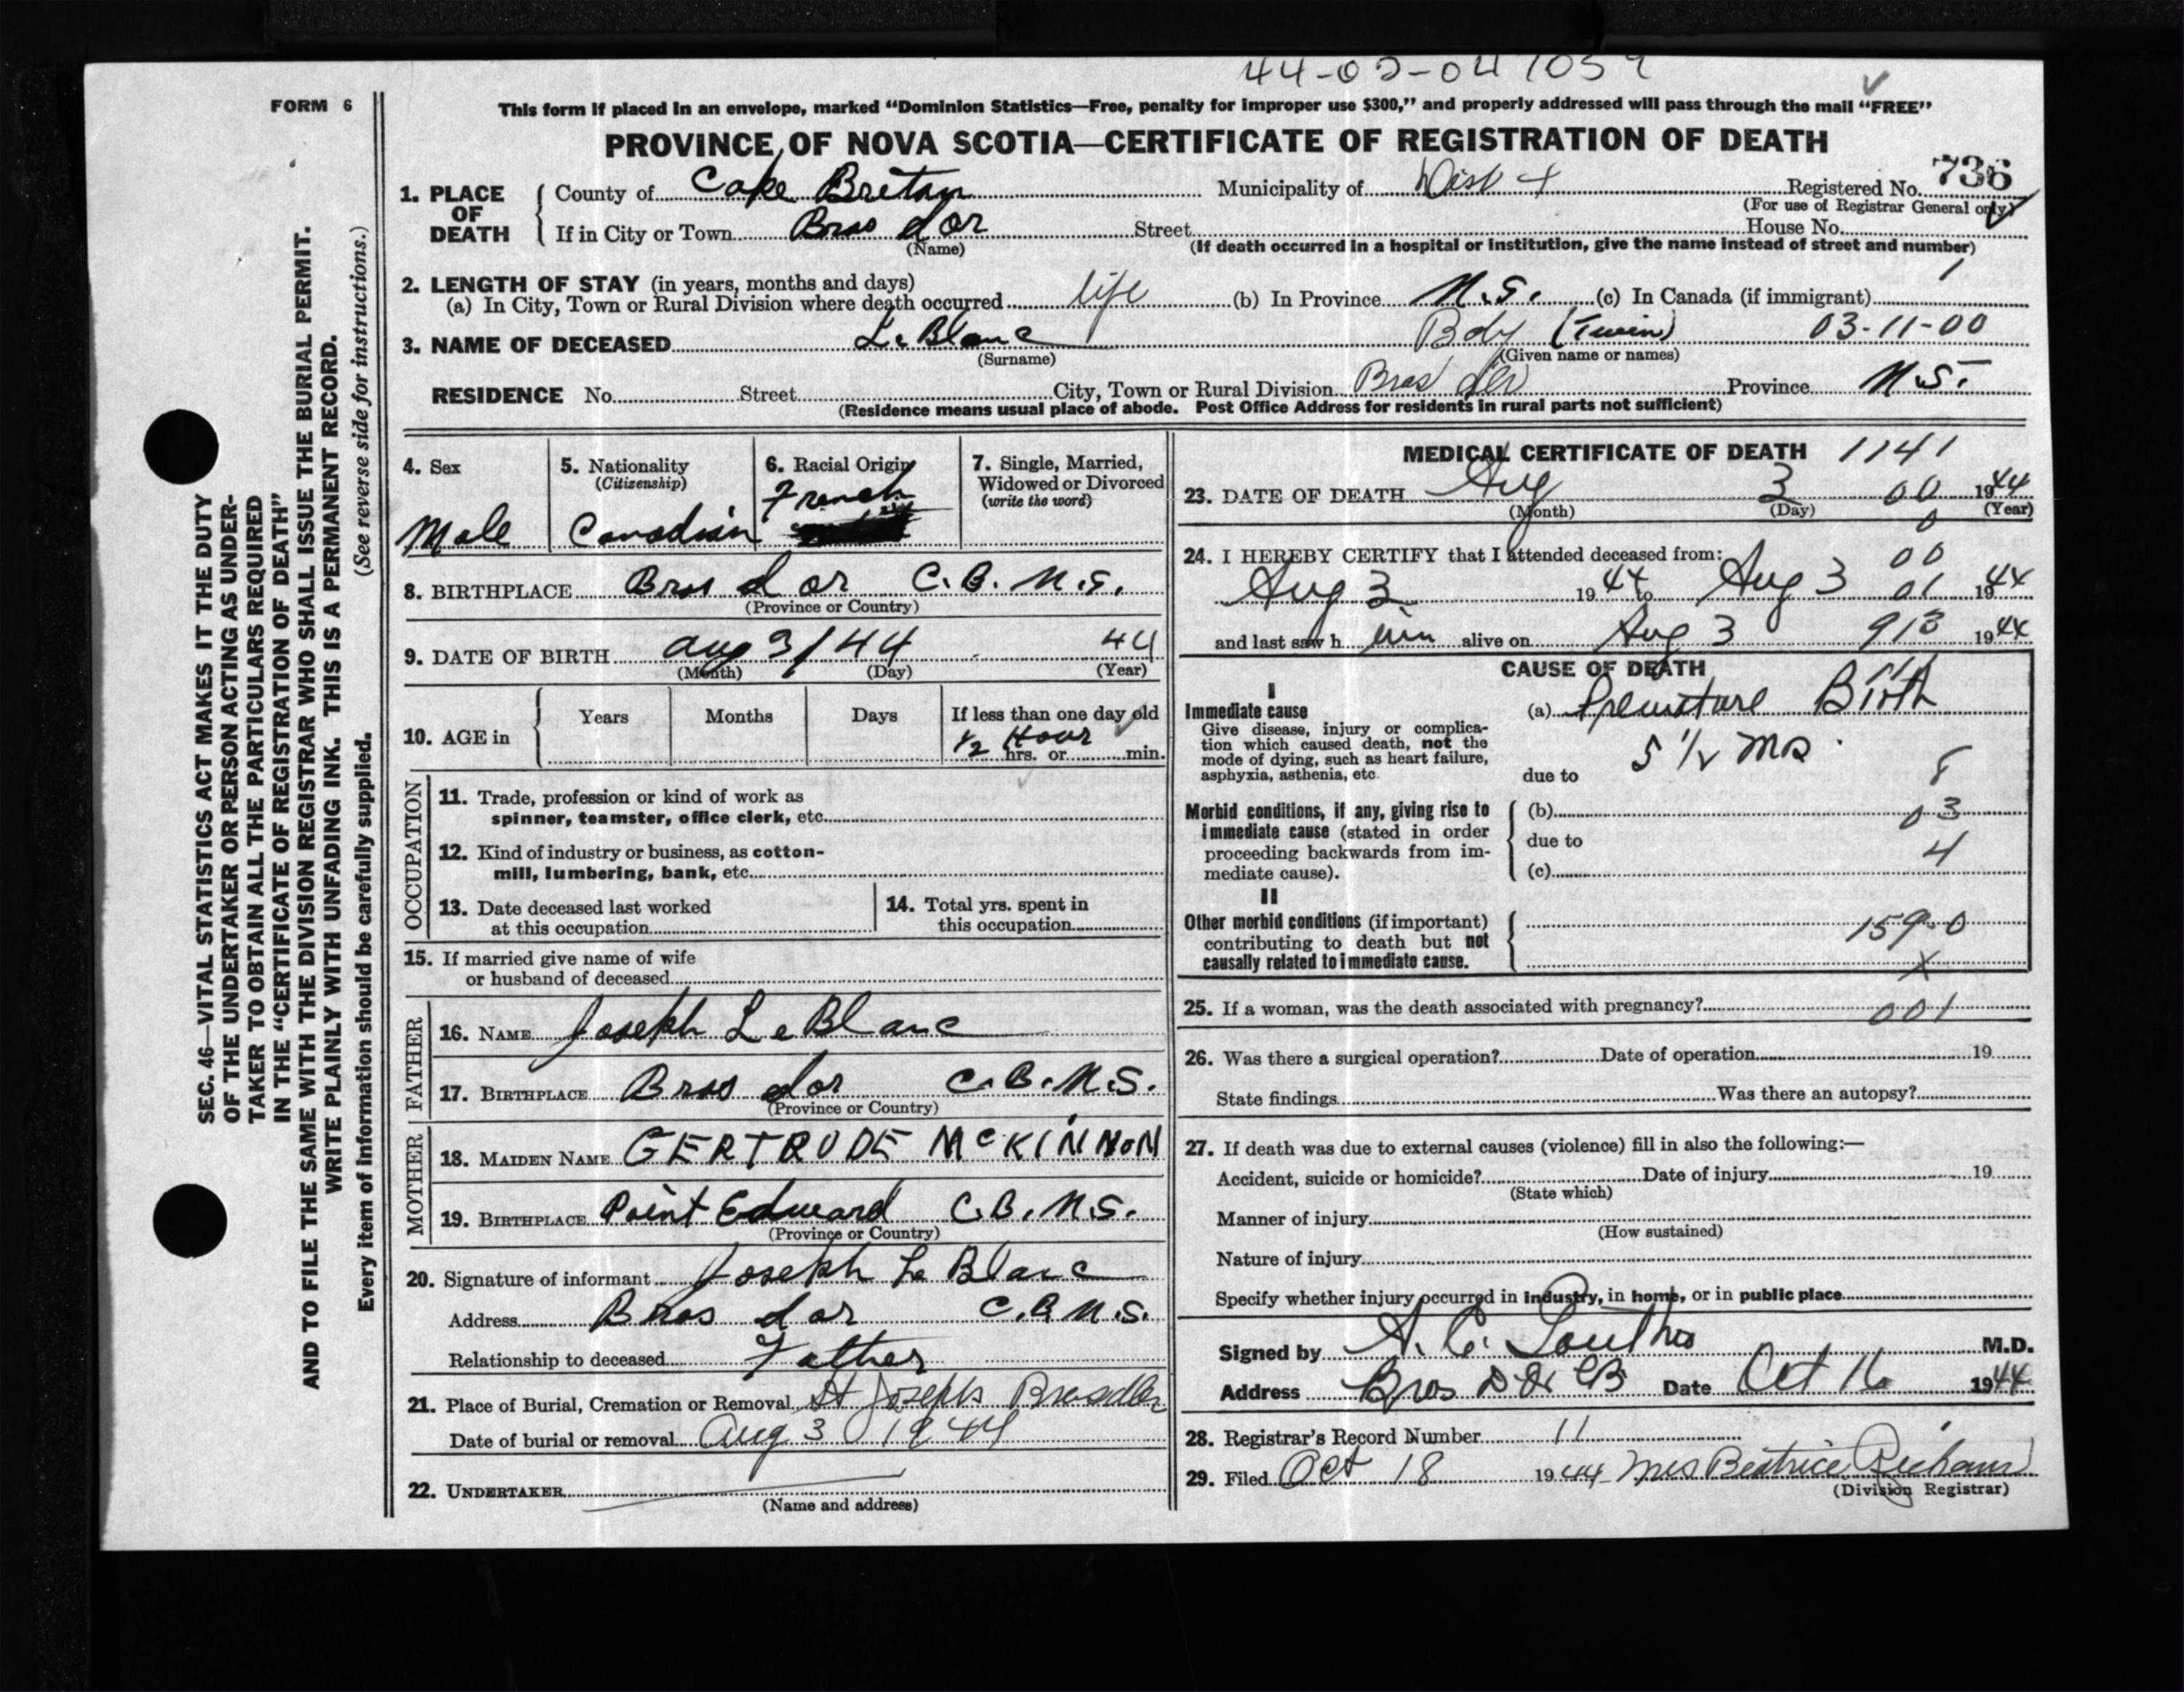 44-02-047059
FORM 6
This form if placed in an envelope, marked “Dominion Statistics—Free, penalty for improper use $300,” and properly addressed will pass through the mail “FREE”
PROVINCE OF NOVA SCOTIA—CERTIFICATE OF REGISTRATION OF DEATH
736
1. PLACE OF DEATH
County of Cape Breton Municipality of Dist 4 Registered No.
(For use of Registrar General only)
If in City or Town Bras d or Street House No.
(Name) (If death occurred in a hospital or institution, give the name instead of street and number)
2. LENGTH OF STAY (in years, months and days) 1
(a) In City, Town or Rural Division where death occurred life (b) In Province N.S. (c) In Canada (if immigrant)
3. NAME OF DECEASED LeBlanc (Twin) 03-11-00
(Surname) (Given name or names)
RESIDENCE No. Street City, Town or Rural Division Bras d'Or Province N.S.
(Residence means usual place of abode. Post Office Address for residents in rural parts not sufficient)
4. Sex
Male
5. Nationality
(Citizenship)
Canadian
6. Racial Origin
French
7. Single, Married,
Widowed or Divorced
(write the word)
8. BIRTHPLACE Bras d or C.B. N.S.
(Province or Country)
9. DATE OF BIRTH Aug 3/44 44
(Month) (Day) (Year)
10. AGE in
Years Months Days If less than one day old
1/2 Hour
hrs. or min.
OCCUPATION
11. Trade, profession or kind of work as
spinner, teamster, office clerk, etc.
12. Kind of industry or business, as cotton-
mill, lumbering, bank, etc.
13. Date deceased last worked
at this occupation
14. Total yrs. spent in
this occupation
15. If married give name of wife
or husband of deceased
FATHER
16. NAME Joseph LeBlanc
17. BIRTHPLACE Bras dor C.B. N.S.
(Province or Country)
MOTHER
18. MAIDEN NAME GERTRUDE McKINNON
19. BIRTHPLACE Point Edward C.B. N.S.
(Province or Country)
20. Signature of informant Joseph Le Blanc
Address Bras d or C.B. N.S.
Relationship to deceased Father
21. Place of Burial, Cremation or Removal St Josephs
Date of burial or removal Aug 3 1944
22. UNDERTAKER
(Name and address)
MEDICAL CERTIFICATE OF DEATH 1141
23. DATE OF DEATH Aug 3 00 1944
(Month) (Day) (Year)
0
24. I HEREBY CERTIFY that I attended deceased from: 00
Aug 3 1944 to Aug 3 01 1944
and last saw him alive on Aug 3 913 1944
CAUSE OF DEATH
I
Immediate cause
Give disease, injury or complica-
tion which caused death, not the
mode of dying, such as heart failure,
asphyxia, asthenia, etc.
(a) Premature Birth
due to 5 1/2 mos. 8
Morbid conditions, if any, giving rise to
immediate cause (stated in order
proceeding backwards from im-
mediate cause).
(b) 03
due to 4
(c)
II
Other morbid conditions (if important)
contributing to death but not
causally related to immediate cause.
159-0
X
25. If a woman, was the death associated with pregnancy? 001
26. Was there a surgical operation? Date of operation 19
State findings Was there an autopsy?
27. If death was due to external causes (violence) fill in also the following:—
Accident, suicide or homicide? Date of injury 19
(State which)
Manner of injury
(How sustained)
Nature of injury
Specify whether injury occurred in industry, in home, or in public place
Signed by A. C. M.D.
Address Bras D'Or CB Date Oct 16 1944
28. Registrar's Record Number 11
29. Filed Oct 18 1944 Mrs Beatrice
(Division Registrar)
SEC. 46—VITAL STATISTICS ACT MAKES IT THE DUTY
OF THE UNDERTAKER OR PERSON ACTING AS UNDER-
TAKER TO OBTAIN ALL THE PARTICULARS REQUIRED
IN THE “CERTIFICATE OF REGISTRATION OF DEATH”
AND TO FILE THE SAME WITH THE DIVISION REGISTRAR WHO SHALL ISSUE THE BURIAL PERMIT.
WRITE PLAINLY WITH UNFADING INK. THIS IS A PERMANENT RECORD.
Every item of information should be carefully supplied. (See reverse side for instructions.)